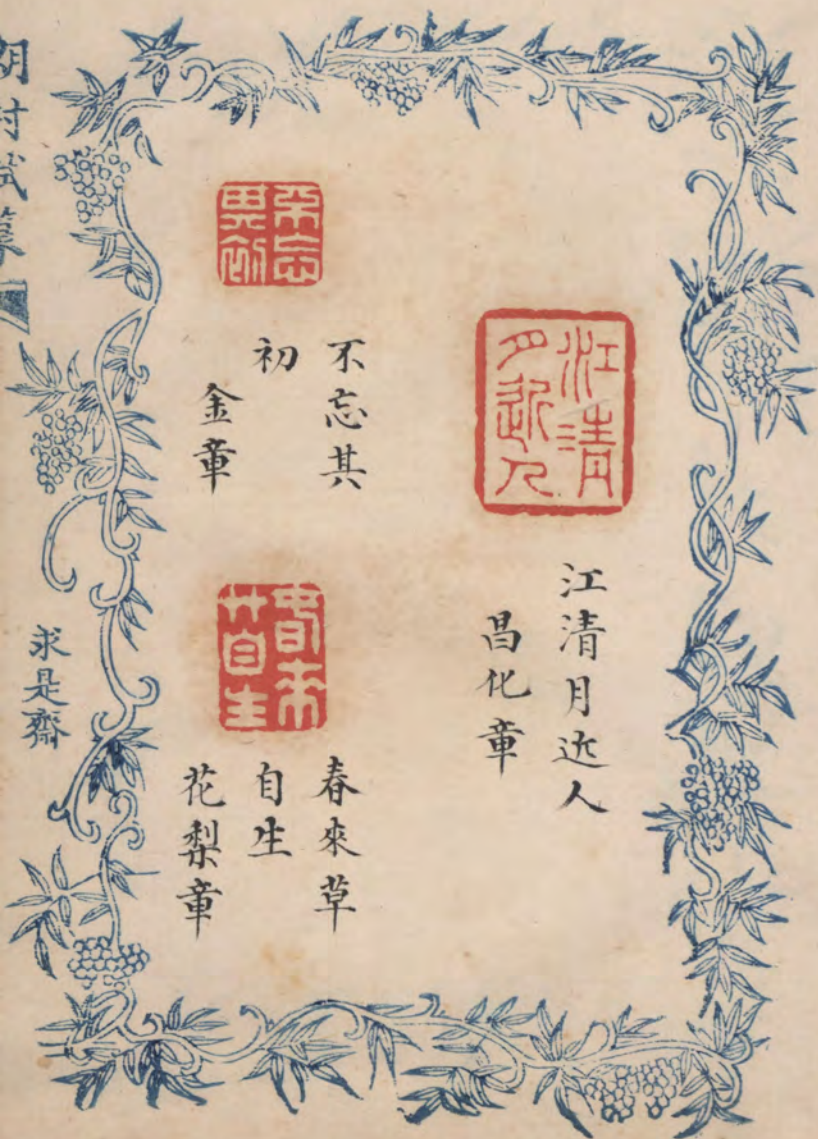 江清
月近人
江清月近人
昌化章
不忘
其初
不忘其
初
金章
春來
草自生
春來草
自生
花梨章
求是齋